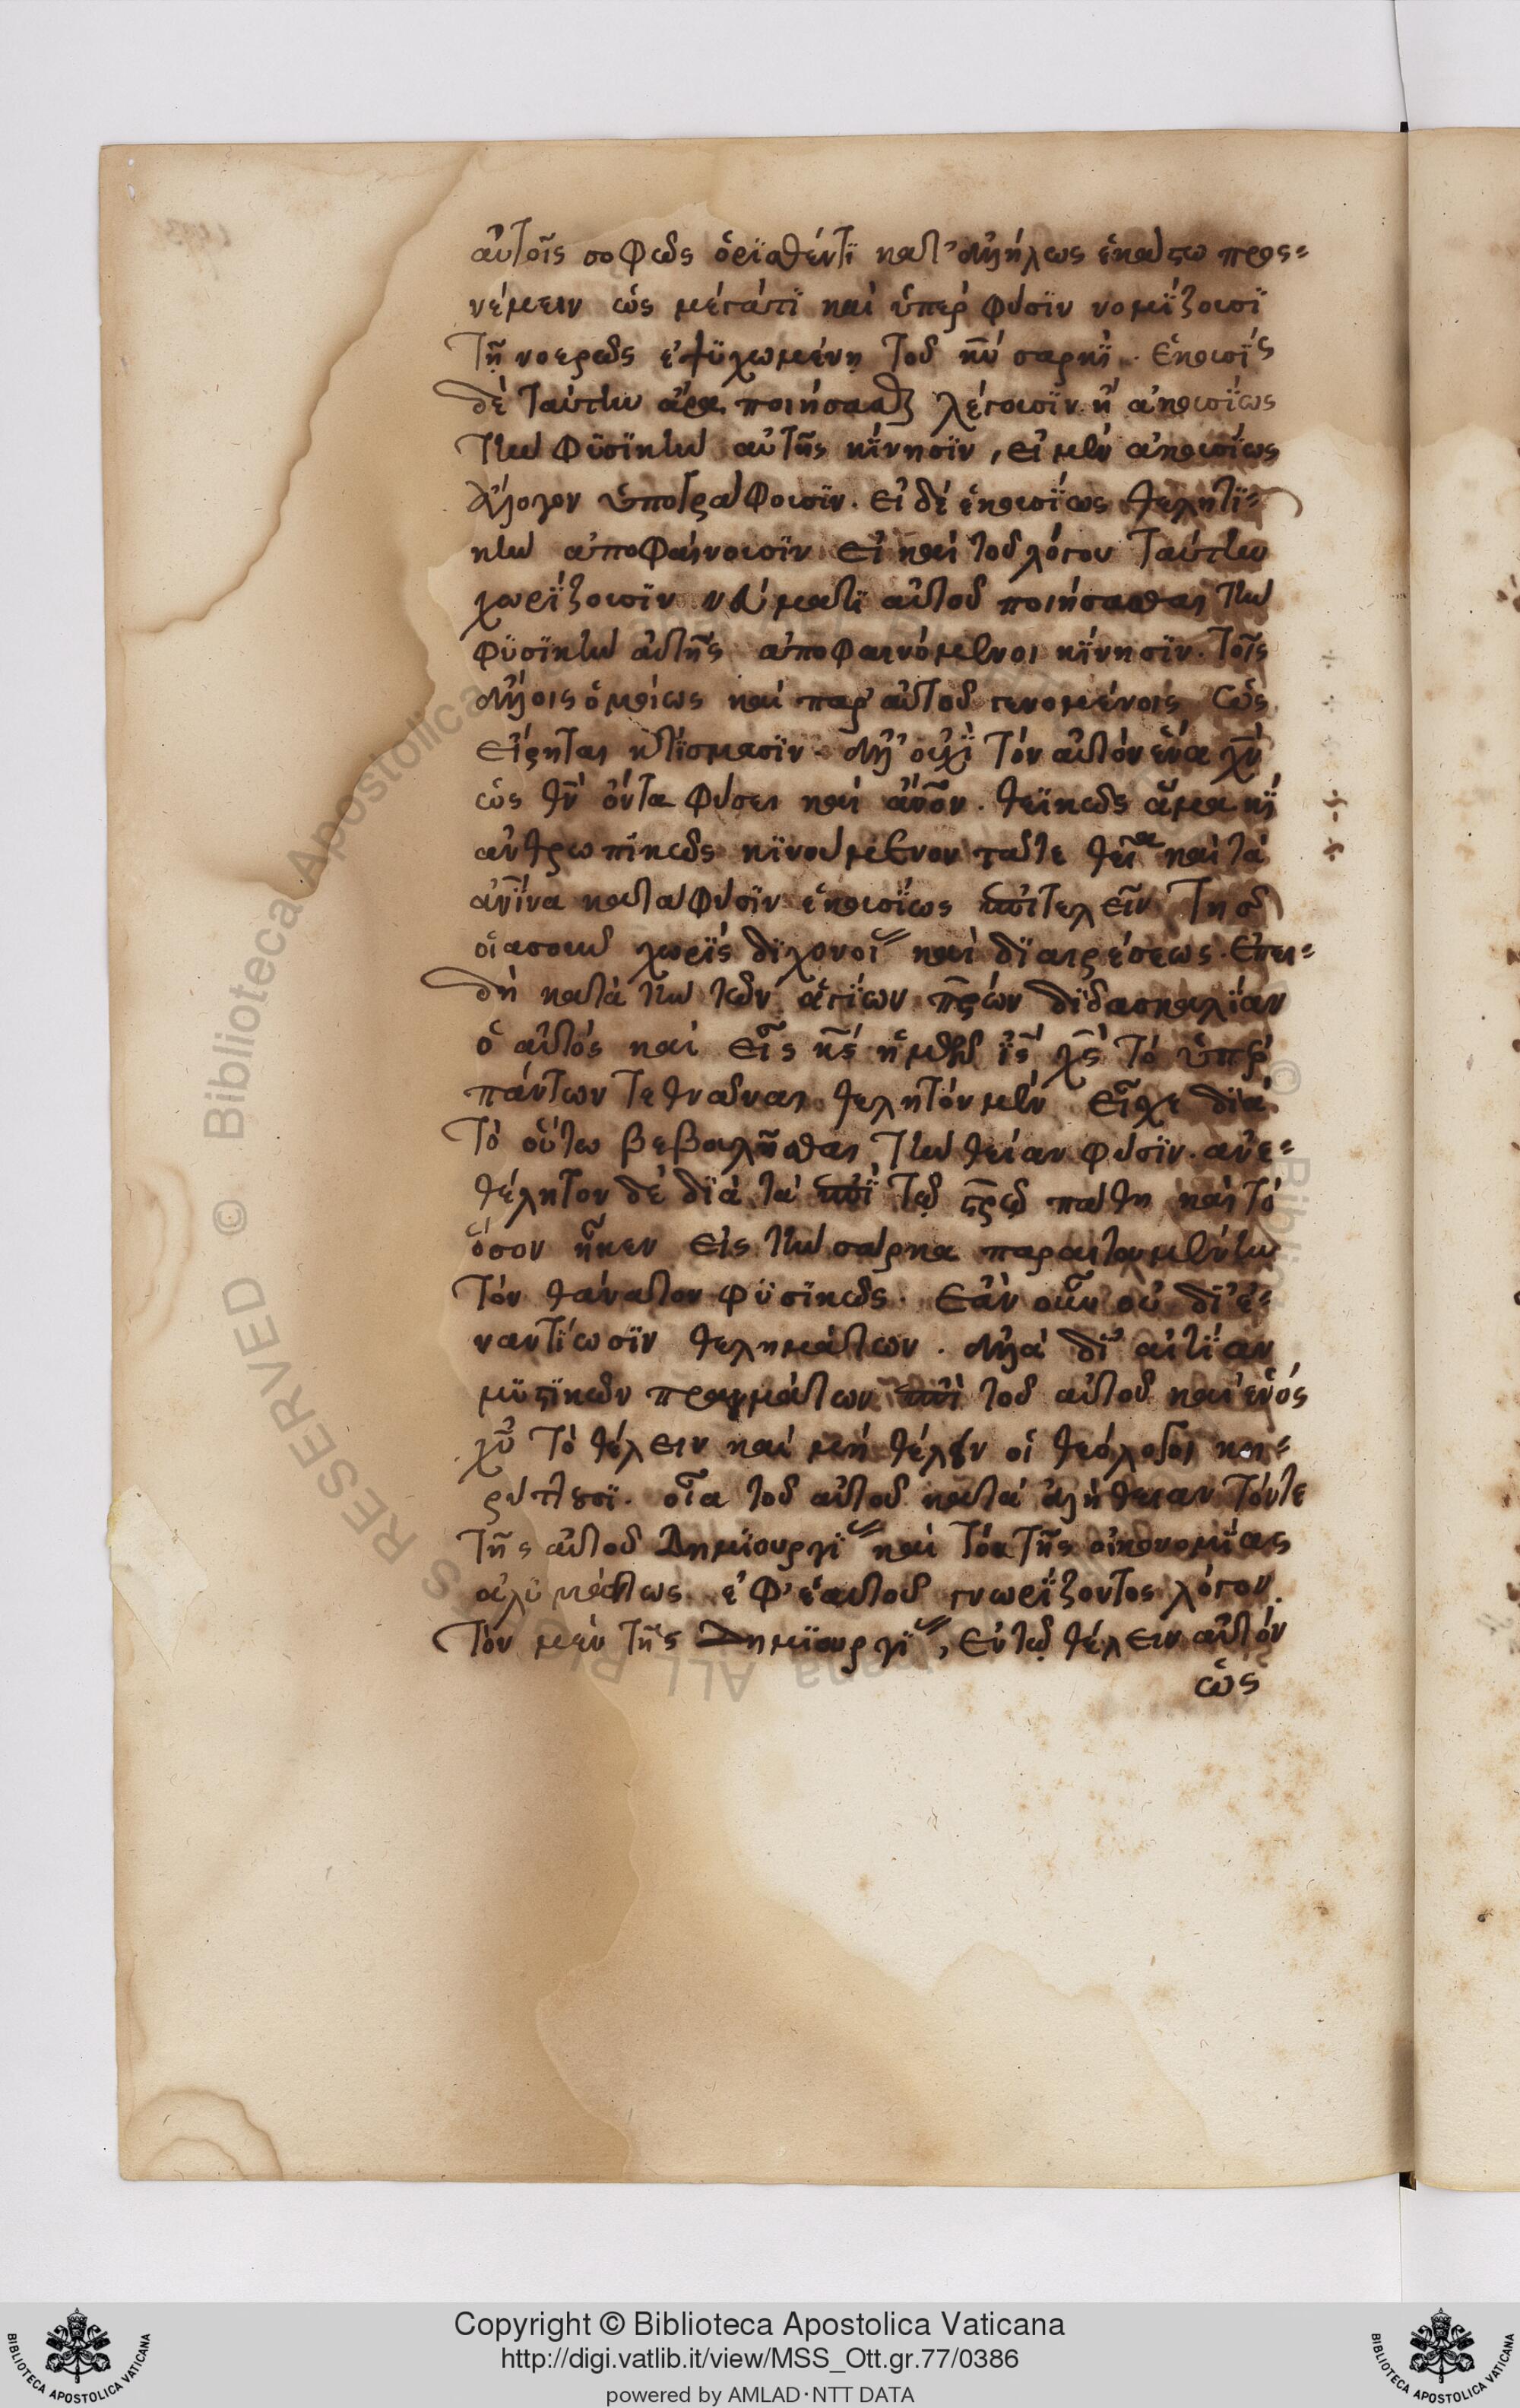 αὐτοῖς σοφῶς ὁρϊσθέντϊ κατ' ἀλλήλως ἑκάστω προς-
νέμειν ὡς μέγάτϊ καὶ ὑπερ φύσϊν νομΐζουσϊ
Τῆ νοερῶς ἐψϋχωμένη τοῦ κυ σαρκΐ. ἑκουσΐς
δὲ ταύτην ἄρα ποιήσασθαι λέγουσϊν ἢ ἀκουσΐως
την φϋσϊκην αὐτῆς κΐνησϊν, εἰ μὲν ἀκουσΐως
ἄλογον ὑπογράφουσϊν. εἰ δὲ ἑκουσΐως θελητϊ-
κην ἀποφαίνουσϊν εἰ καὶ τοῦ λόγου ταύτην
χωρΐζουσϊν νεύματϊ αὐτοῦ ποιήσασθαι την
φϋσϊκην αὐτῆς ἀποφαινόμενοι κΐνησϊν. τοῖς
ἄλλοις ὁμοίως καὶ παρ' αὐτοῦ γενομένοις ὡς
εἴρηται κτΐσμασϊν. ἀλλ' οὐχὶ τὸν αὐτὸν ἕνα χν
ὡς θν ὄντα φύσει καὶ ἄνον. θεϊκῶς ἅμα κϊ
ἀνθρωπΐκῶς κϊνούμενον τάτε θεῖα καὶ τὰ
ἀνΐνα κατὰ φύσϊν ἑκουσΐως ἐπιτελεῖν
χωρῒς δϊχονοΐ καὶ δϊαιρέσεως. ἐπει-
δὴ κατὰ την τῶν ἁγΐων πρων δϊδασκαλΐαν
ὁ αὐτὸς καὶ εἷς κς ἡμῶν ις χς τὸ ὑπὲρ
πάντων τεθνᾶναι θελητὸν μὲν εἶχε δϊὰ
τὸ οὕτω βεβουλῆσθαι την θείαν φύσϊν. ἀνε-
θέλητον δὲ δϊὰ τὰ ἐπὶ τῷ στρῷ πάθη καὶ τὸ
ὅσον ἧκεν εἰς την σάρκα παραιτουμένην
τὸν θάνατον φϋσϊκῶς. ἐὰν οὖν οὐ δϊ' ἐ-
ναντΐωσϊν θελημάτων. ἀλλὰ δϊ' αἰτΐαν
μϋστϊκῶν πραγμάτων ἐπὶ τοῦ αὐτοῦ καὶ ἑνὸς
χυ τὸ θέλειν καὶ μὴ θέλειν οἱ θεόλογοι κη-
ρύττουσϊ. οἷα τοῦ αὐτοῦ κατὰ ἀλήθειαν τόντε
τῆς αὐτοῦ δημϊουργΐ καὶ τὸν τῆς οἰκονομΐας
ἐφ' ἑαυτοῦ γνωρΐζοντος λόγον.
τὸν μὲν τῆς δημϊουργΐ, ἐν τῷ θέλειν αὐτὸν
ὡς
Copyright © Biblioteca Apostolica Vaticana
http://digi.vatlib.it/view/MSS_Ott.gr.77/0386
powered by AMLAD·NTT DATA